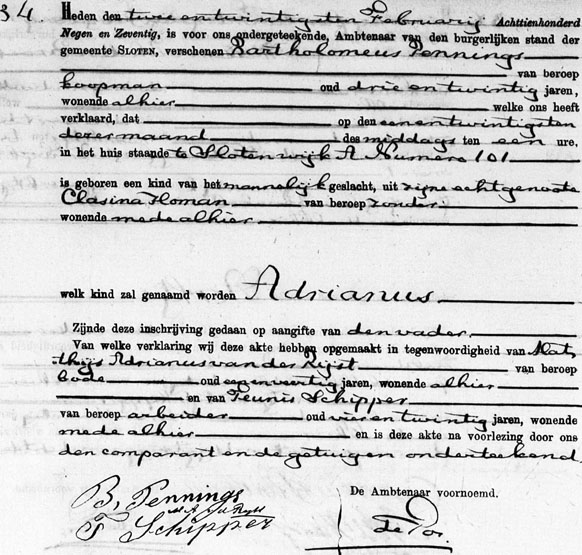 34.
Heden den twee en twintigsten Februarij Achttienhonderd
Negen en Zeventig, is voor ons ondergeteekende, Ambtenaar van den burgerlijken stand der
gemeente SLOTEN, verschenen Bartholomeus Pennings
van beroep
koopman oud drie en twintig jaren,
wonende alhier welke ons heeft
verklaard, dat op den een en twintigsten
dezer maand des middags ten een ure,
in het huis staande te Sloten wijk A Numero 101
is geboren een kind van het mannelijk geslacht, uit zijne echtgenoote
Clasina Homan van beroep zonder
wonende mede alhier
welk kind zal genaamd worden Adrianus
Zijnde deze inschrijving gedaan op aangifte van den vader
Van welke verklaring wij deze akte hebben opgemaakt in tegenwoordigheid van Mat
thijs Adrianus van der Rijst van beroep
bode oud een en veertig jaren, wonende alhier
en van Teunis Schipper
van beroep arbeider oud vier en twintig jaren, wonende
mede alhier en is deze akte na voorlezing door ons
den comparant en de getuigen onderteekend.
B. Pennings
T Schipper
De Ambtenaar voornoemd.